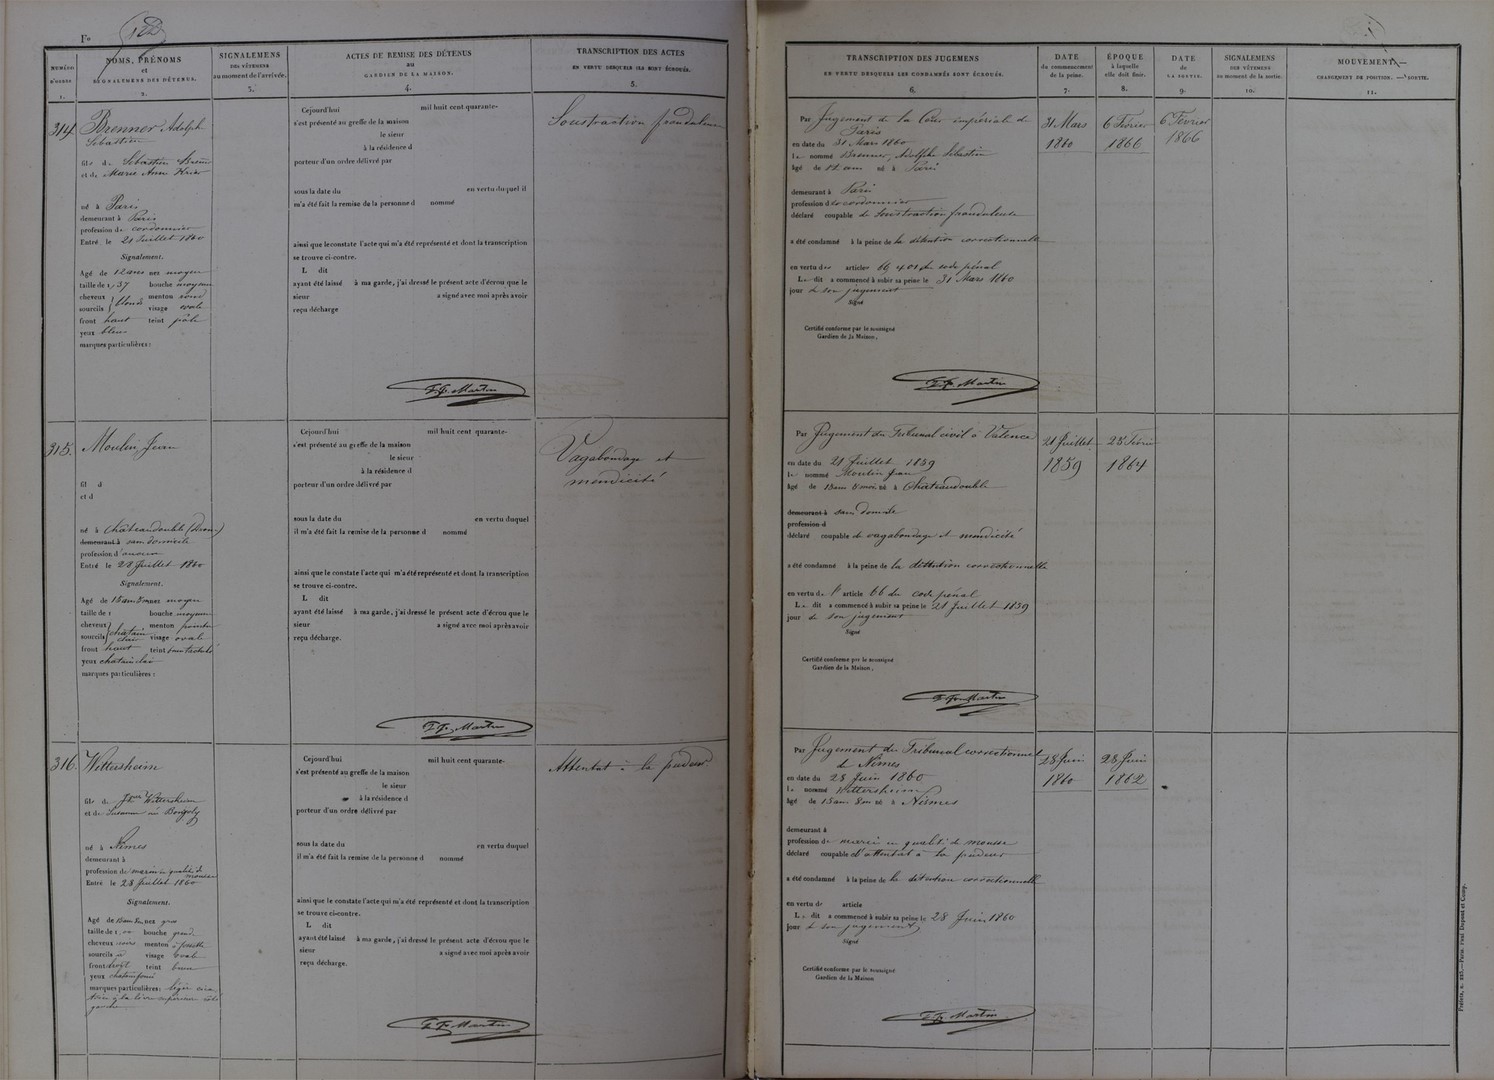 Fo 122
NUMÉRO D'ORDRE 1.
NOMS, PRÉNOMS et SIGNALEMENS DES DÉTENUS. 2.
SIGNALEMENS DES VÊTEMENS au moment de l'arrivée. 3.
ACTES DE REMISE DES DÉTENUS au GARDIEN DE LA MAISON. 4.
TRANSCRIPTION DES ACTES EN VERTU DESQUELS ILS SONT ÉCROUÉS. 5.
TRANSCRIPTION DES JUGEMENS EN VERTU DESQUELS LES CONDAMNÉS SONT ÉCROUÉS. 6.
DATE du commencement de la peine. 7.
ÉPOQUE à laquelle elle doit finir. 8.
DATE de LA SORTIE. 9.
SIGNALEMENS DES VÊTEMENS au moment de la sortie. 10.
MOUVEMENT. CHANGEMENT DE POSITION. — SORTIE. 11.
314.
Brenner Adolph
Sébastien
fils de Sébastien
et de Marie Ann
né à Paris
demeurant à Paris
profession de cordonnier
Entré le 21 Juillet 1860
Signalement.
Agé de 12 ans nez moyen
taille de 1,37 bouche moyenne
cheveux blonds menton rond
sourcils visage ovale
front haut teint pâle
yeux bleus
marques particulières :
Cejourd'hui mil huit cent quarante-
s'est présenté au greffe de la maison
le sieur
à la résidence d
porteur d'un ordre délivré par
sous la date du en vertu duquel il
m'a été fait la remise de la personne d nommé
ainsi que le constate l'acte qui m'a été représenté et dont la transcription
se trouve ci-contre.
L dit
ayant été laissé à ma garde, j'ai dressé le présent acte d'écrou que le
sieur a signé avec moi après avoir
reçu décharge
F. Martin
Soustraction frauduleuse
Par Jugement de la Cour impériale de
Paris
en date du 31 Mars 1860
le nommé Brenner, Adolphe Sébastien
âgé de 12 ans né à Paris
demeurant à Paris
profession de cordonnier
déclaré coupable de Soustraction frauduleuse
a été condamné à la peine de la détention correctionnelle
en vertu des articles 66, 401 du code pénal
Le dit a commencé à subir sa peine le 31 Mars 1860
jour de son jugement
Signé
Certifié conforme par le soussigné
Gardien de la Maison,
F. Martin
31 Mars
1860
6 Février
1866
6 Février
1866
315.
Moulin Jean
fil d
et d
né à Châteaudouble
demeurant à sans domicile
profession d'aucune
Entré le 28 Juillet 1860
Signalement.
Agé de 15 ans nez moyen
taille de 1 bouche moyenne
cheveux châtain menton pointu
sourcils clair visage ovale
front haut teint
yeux châtain clair
marques particulières :
Cejourd'hui mil huit cent quarante-
s'est présenté au greffe de la maison
le sieur
à la résidence d
porteur d'un ordre délivré par
sous la date du en vertu duquel
il m'a été fait la remise de la personne d nommé
ainsi que le constate l'acte qui m'a été représenté et dont la transcription
se trouve ci-contre.
L dit
ayant été laissé à ma garde, j'ai dressé le présent acte d'écrou que le
sieur a signé avec moi après avoir
reçu décharge.
F. Martin
Vagabondage et
mendicité
Par Jugement du Tribunal civil à Valence
en date du 21 Juillet 1859
le nommé Moulin Jean
âgé de 15 ans 5 mois né à Châteaudouble
demeurant à sans domicile
profession d
déclaré coupable de vagabondage et mendicité
a été condamné à la peine de la détention correctionnelle
en vertu de l'article 66 du code pénal
Le dit a commencé à subir sa peine le 21 Juillet 1859
jour de son jugement
Signé
Certifié conforme par le soussigné
Gardien de la Maison,
F. Martin
21 Juillet
1859
25 Février
1864
316.
Wittersheim
fils de Wittersheim
et de
né à Nimes
demeurant à
profession de marin en qualité de
mousse
Entré le 28 Juillet 1860
Signalement.
Agé de nez gros
taille de 1, bouche grand
cheveux noirs menton à fossette
sourcils id visage ovale
front teint brun
yeux
marques particulières : légère
à la lèvre supérieure côté
gauche
Cejourd'hui mil huit cent quarante-
s'est présenté au greffe de la maison
le sieur
à la résidence d
porteur d'un ordre délivré par
sous la date du en vertu duquel
il m'a été fait la remise de la personne d nommé
ainsi que le constate l'acte qui m'a été représenté et dont la transcription
se trouve ci-contre.
L dit
ayant été laissé à ma garde, j'ai dressé le présent acte d'écrou que le
sieur a signé avec moi après avoir
reçu décharge.
F. Martin
Attentat à la pudeur
Par Jugement du Tribunal correctionnel
de Nimes
en date du 28 Juin 1860
le nommé Wittersheim
âgé de 15 ans né à Nismes
demeurant à
profession de marin en qualité de mousse
déclaré coupable d'attentat à la pudeur
a été condamné à la peine de la détention correctionnelle
en vertu de article
Le dit a commencé à subir sa peine le 28 Juin 1860
jour de son jugement
Signé
Certifié conforme par le soussigné
Gardien de la Maison
F. Martin
28 Juin
1860
28 Juin
1862